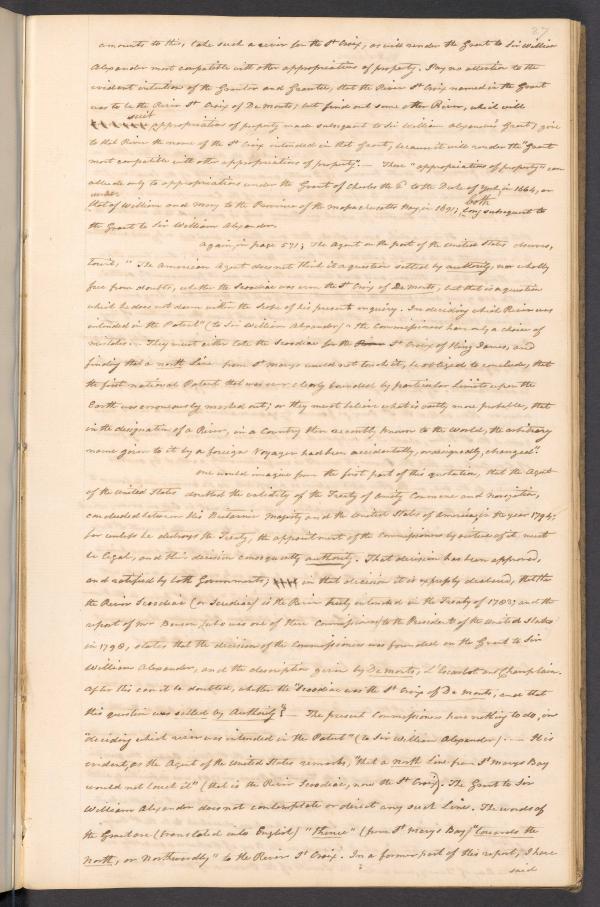 27
amounts to this, take such a river for the St Croix, as will render the Grant to Sir William
Alexander most compatible with other appropriations of property. Pay no attention to the
evident intention of the Grantor and Grantee, that the River St Croix named in the Grant
was to be the River St Croix of De Monts; but find out some other River, which will
suit
appropriations of property made subsequent to Sir William Alexanders Grant; give
to that River the name of the St Croix intended in that Grant, because it will render the "Grant
most compatible with other appropriations of property".— These "appropriations of property" can
allude only to appropriations under the Grant of Charles the 2d to the Duke of York in 1664, or
under
that of William and Mary to the Province of the Massachusetts Bay, in 1691; both long subsequent to
the Grant to Sir William Alexander.
Again, in page 571; The Agent on the part of the United States observes,
towit, "The American Agent does not think it a question settled by authority, nor wholly
free from doubts, whether the Scoodiac was even the St Croix of De Monts, but that is a question
which he does not deem within the scope of his present inquiry. In deciding which River was
intended in the Patent" (to Sir William Alexander) "the Commissioners have only a choice of
mistakes. They must either take the Scoodiac for the St Croix of King James, and
finding that a north Line from St Marys would not touch it, be obliged to conclude, that
the first national Patent that was ever clearly bounded by particular Limits upon the
Earth was erroneously marked out; or they must believe what is vastly more probable, that
in the designation of a River, in a Country then recently known to the World, the arbitrary
name given to it by a foreign Voyager had been accidentally, or designedly, changed."
One would imagine from the first part of this quotation, that the Agent
of the United States doubted the validity of the Treaty of Amity Commerce and Navigation,
concluded between His Britannic Majesty and the United States of America, in the year 1794;
for unless he destroys the Treaty, the appointment of the Commissioners by virtue of it must
be legal, and their decision consequently authority. That decision has been approved,
and ratified by both Governments; in that decision it is expressly declared, that the
the River Scoodiac (or Scudiac) is the River truly intended in the Treaty of 1783; and the
report of Mr Benson, (who was one of these Commissioners) to the President of the United States
in 1798, states that the decision of the Commissioners was founded on the Grant to Sir
William Alexander, and the description given by De Monts, L'Escarbot and Champlain.
After this can it be doubted, whether the "Scoodiac was the St Croix of De Monts, and that
this question was settled by Authority"?— The present Commissioners have nothing to do, in
"deciding which river was intended in the Patent" (to Sir William Alexander).— It is
evident, as the Agent of the United States remarks, "that a north Line from St Marys Bay
would not touch it" (that is the River Scoodiac, now the St Croix). The Grant to Sir
William Alexander does not contemplate or direct any such Line. The words of
the Grant are (translated into English) "thence" (from St Marys Bay) "towards the
North, or Northwardly" to the River St Croix. In a former part of this report, I have
said